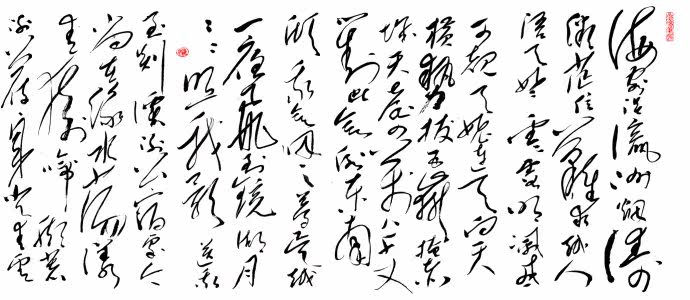 海客谈瀛洲烟涛
微茫信難求越人
语天姥雲霞明滅或
可睹天姥連天向天
横势拔五嶽掩赤
城天台四萬八千丈
對此欲倒东南
倾我欲因之梦吴越
一夜飛度鏡湖月
々々照我影送我
至剡溪谢公宿處今
尚在渌水荡漾
清猿啼脚著
谢公屐身登青雲